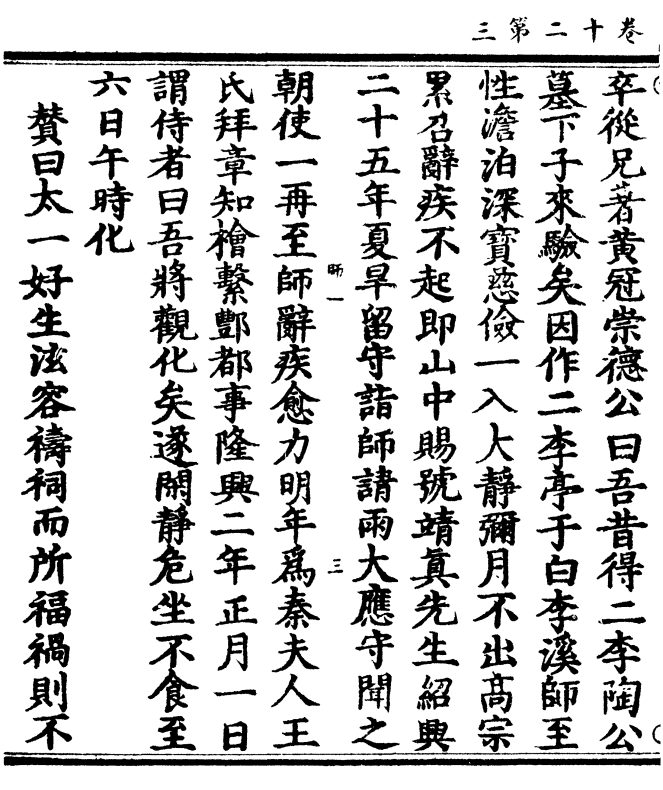 卷十二第三
卒從兄著黃冠崇德公曰吾昔得二李陶公
墓下子來驗矣因作二李亭于白李溪師至
性澹泊深寳慈儉一入大靜彌月不出髙宗
累召辭疾不起即山中賜號靖真先生紹興
二十五年夏旱留守詣師請雨大應守聞之
師一 三
朝使一再至師辭疾愈力明年爲秦夫人王
氏拜章知檜繫酆都事隆興二年正月一日
謂侍者曰吾將觀化矣遂閑靜危坐不食至
六日午時化
賛曰太一好生法容禱祠而所福禍則不